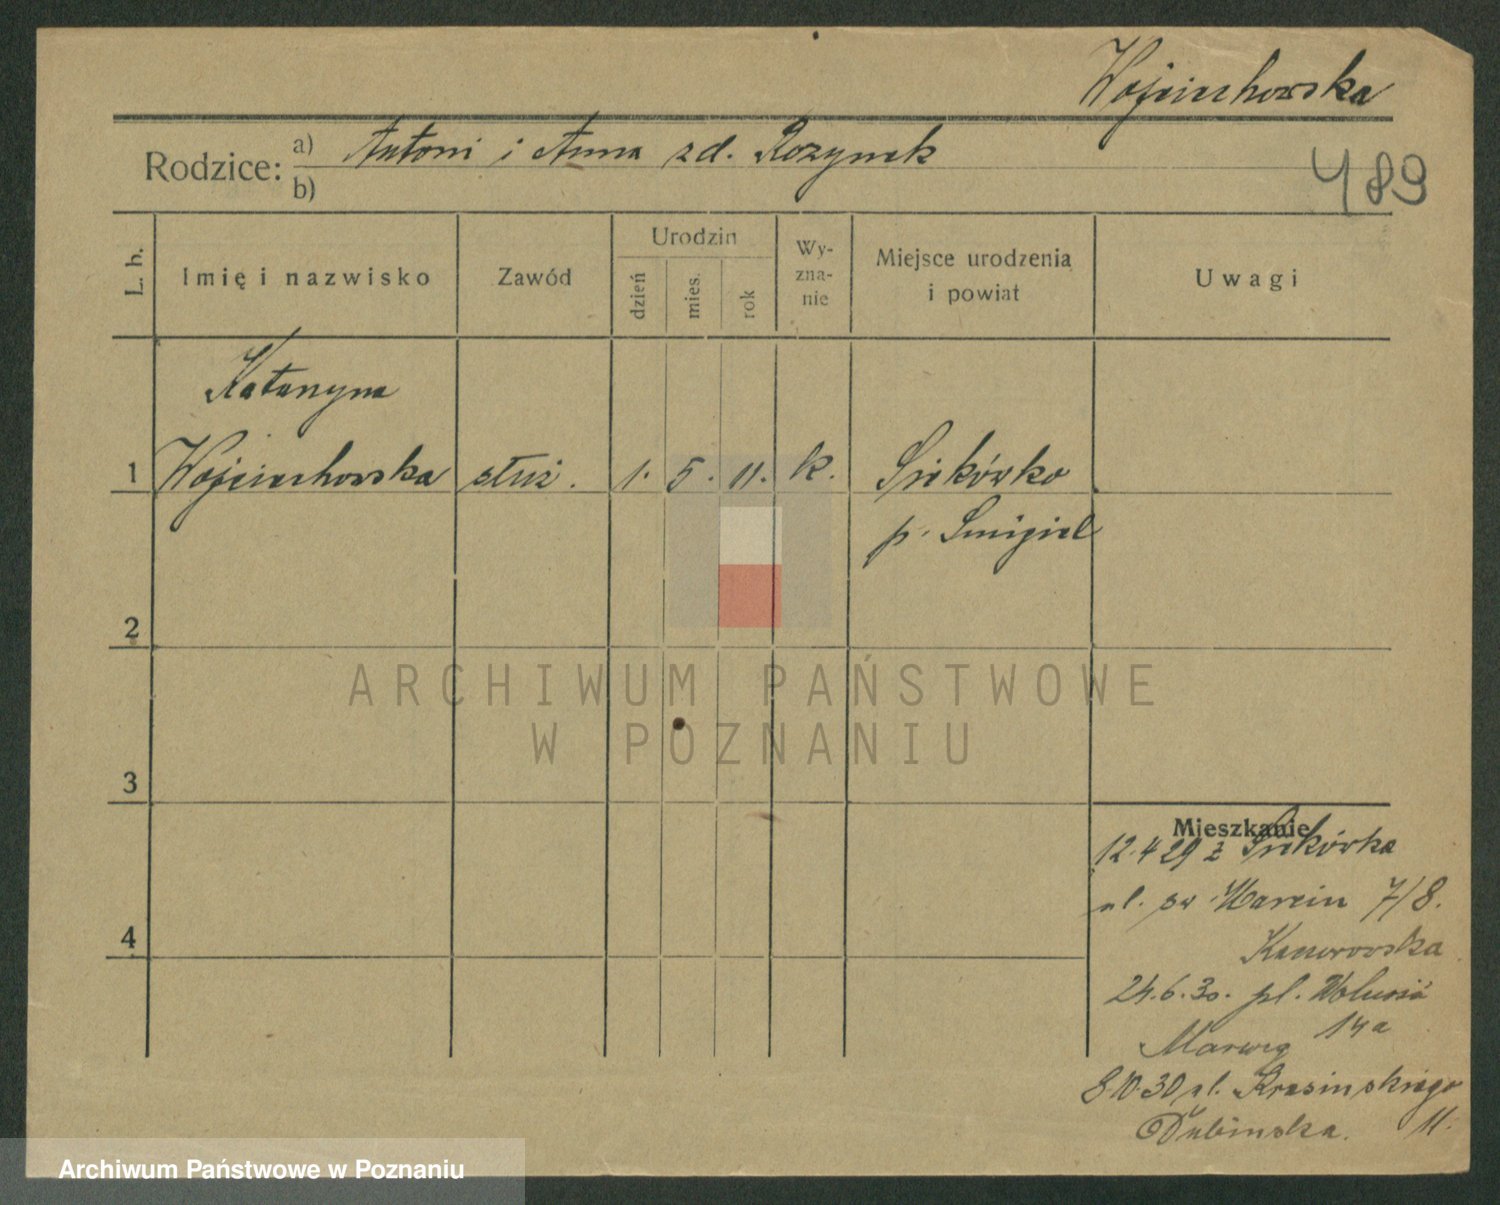 Wojciechowska
Rodzice: a) Antoni i Anna zd. Rozynek
b)
489
L. b.
Imię i nazwisko
Zawód
Urodzin
dzień
mies.
rok
Wy-
zna-
nie
Miejsce urodzenia
i powiat
Uwagi
Katarzyna
1 Wojciechowska służ. 1. 5. 11. k. Siekówko
p. Śmigiel
2
ARCHIWUM PAŃSTWOWE
W POZNANIU
3
Mieszkanie
12.4 29 z Siekówka
ul. św Marcin 7/8.
24.6.30. pl.
14a
8.10.30 ul. Krasińskiego
Dubinska. 11.
4
Archiwum Państwowe w Poznaniu